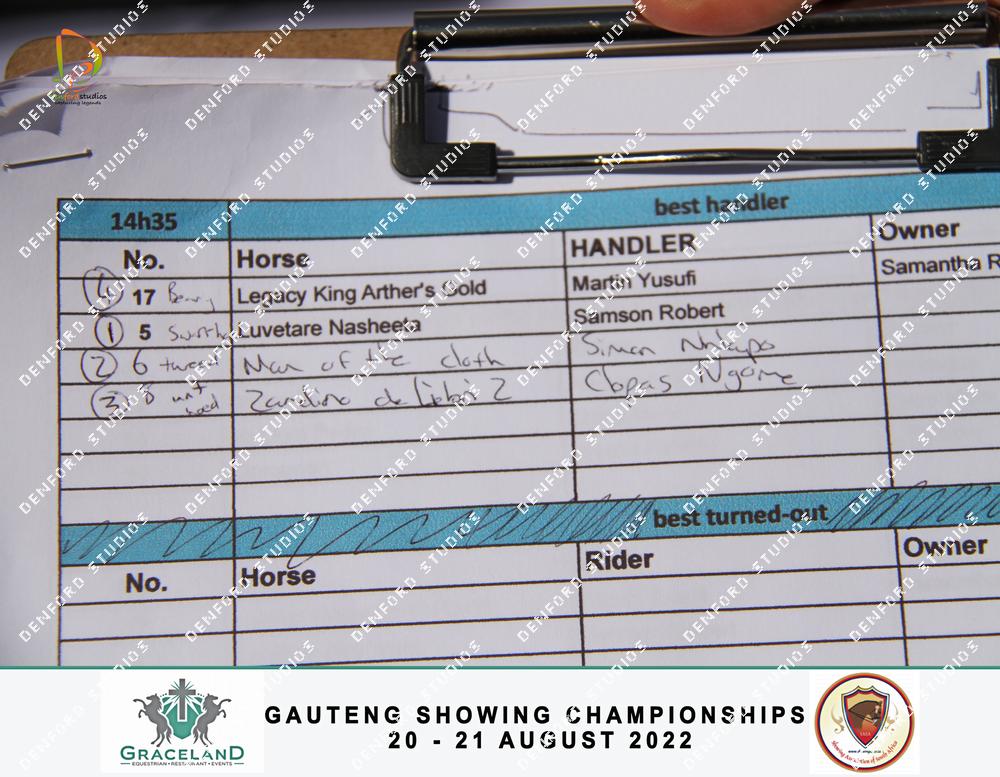 studios
capturing legends
DENFORD STUDIOS
14h35 best handler
No. Horse HANDLER Owner
4 17 Legacy King Arther's Gold Martin Yusufi Samantha R
1 5 Luvetare Nasheeta Samson Robert
2 6 tweed Man of the cloth Simon
3 8 Zandino de Clopas Ngome
best turned-out
No. Horse Rider Owner
GRACELAND
EQUESTRIAN • RESTAURANT • EVENTS
GAUTENG SHOWING CHAMPIONSHIPS
20 - 21 AUGUST 2022